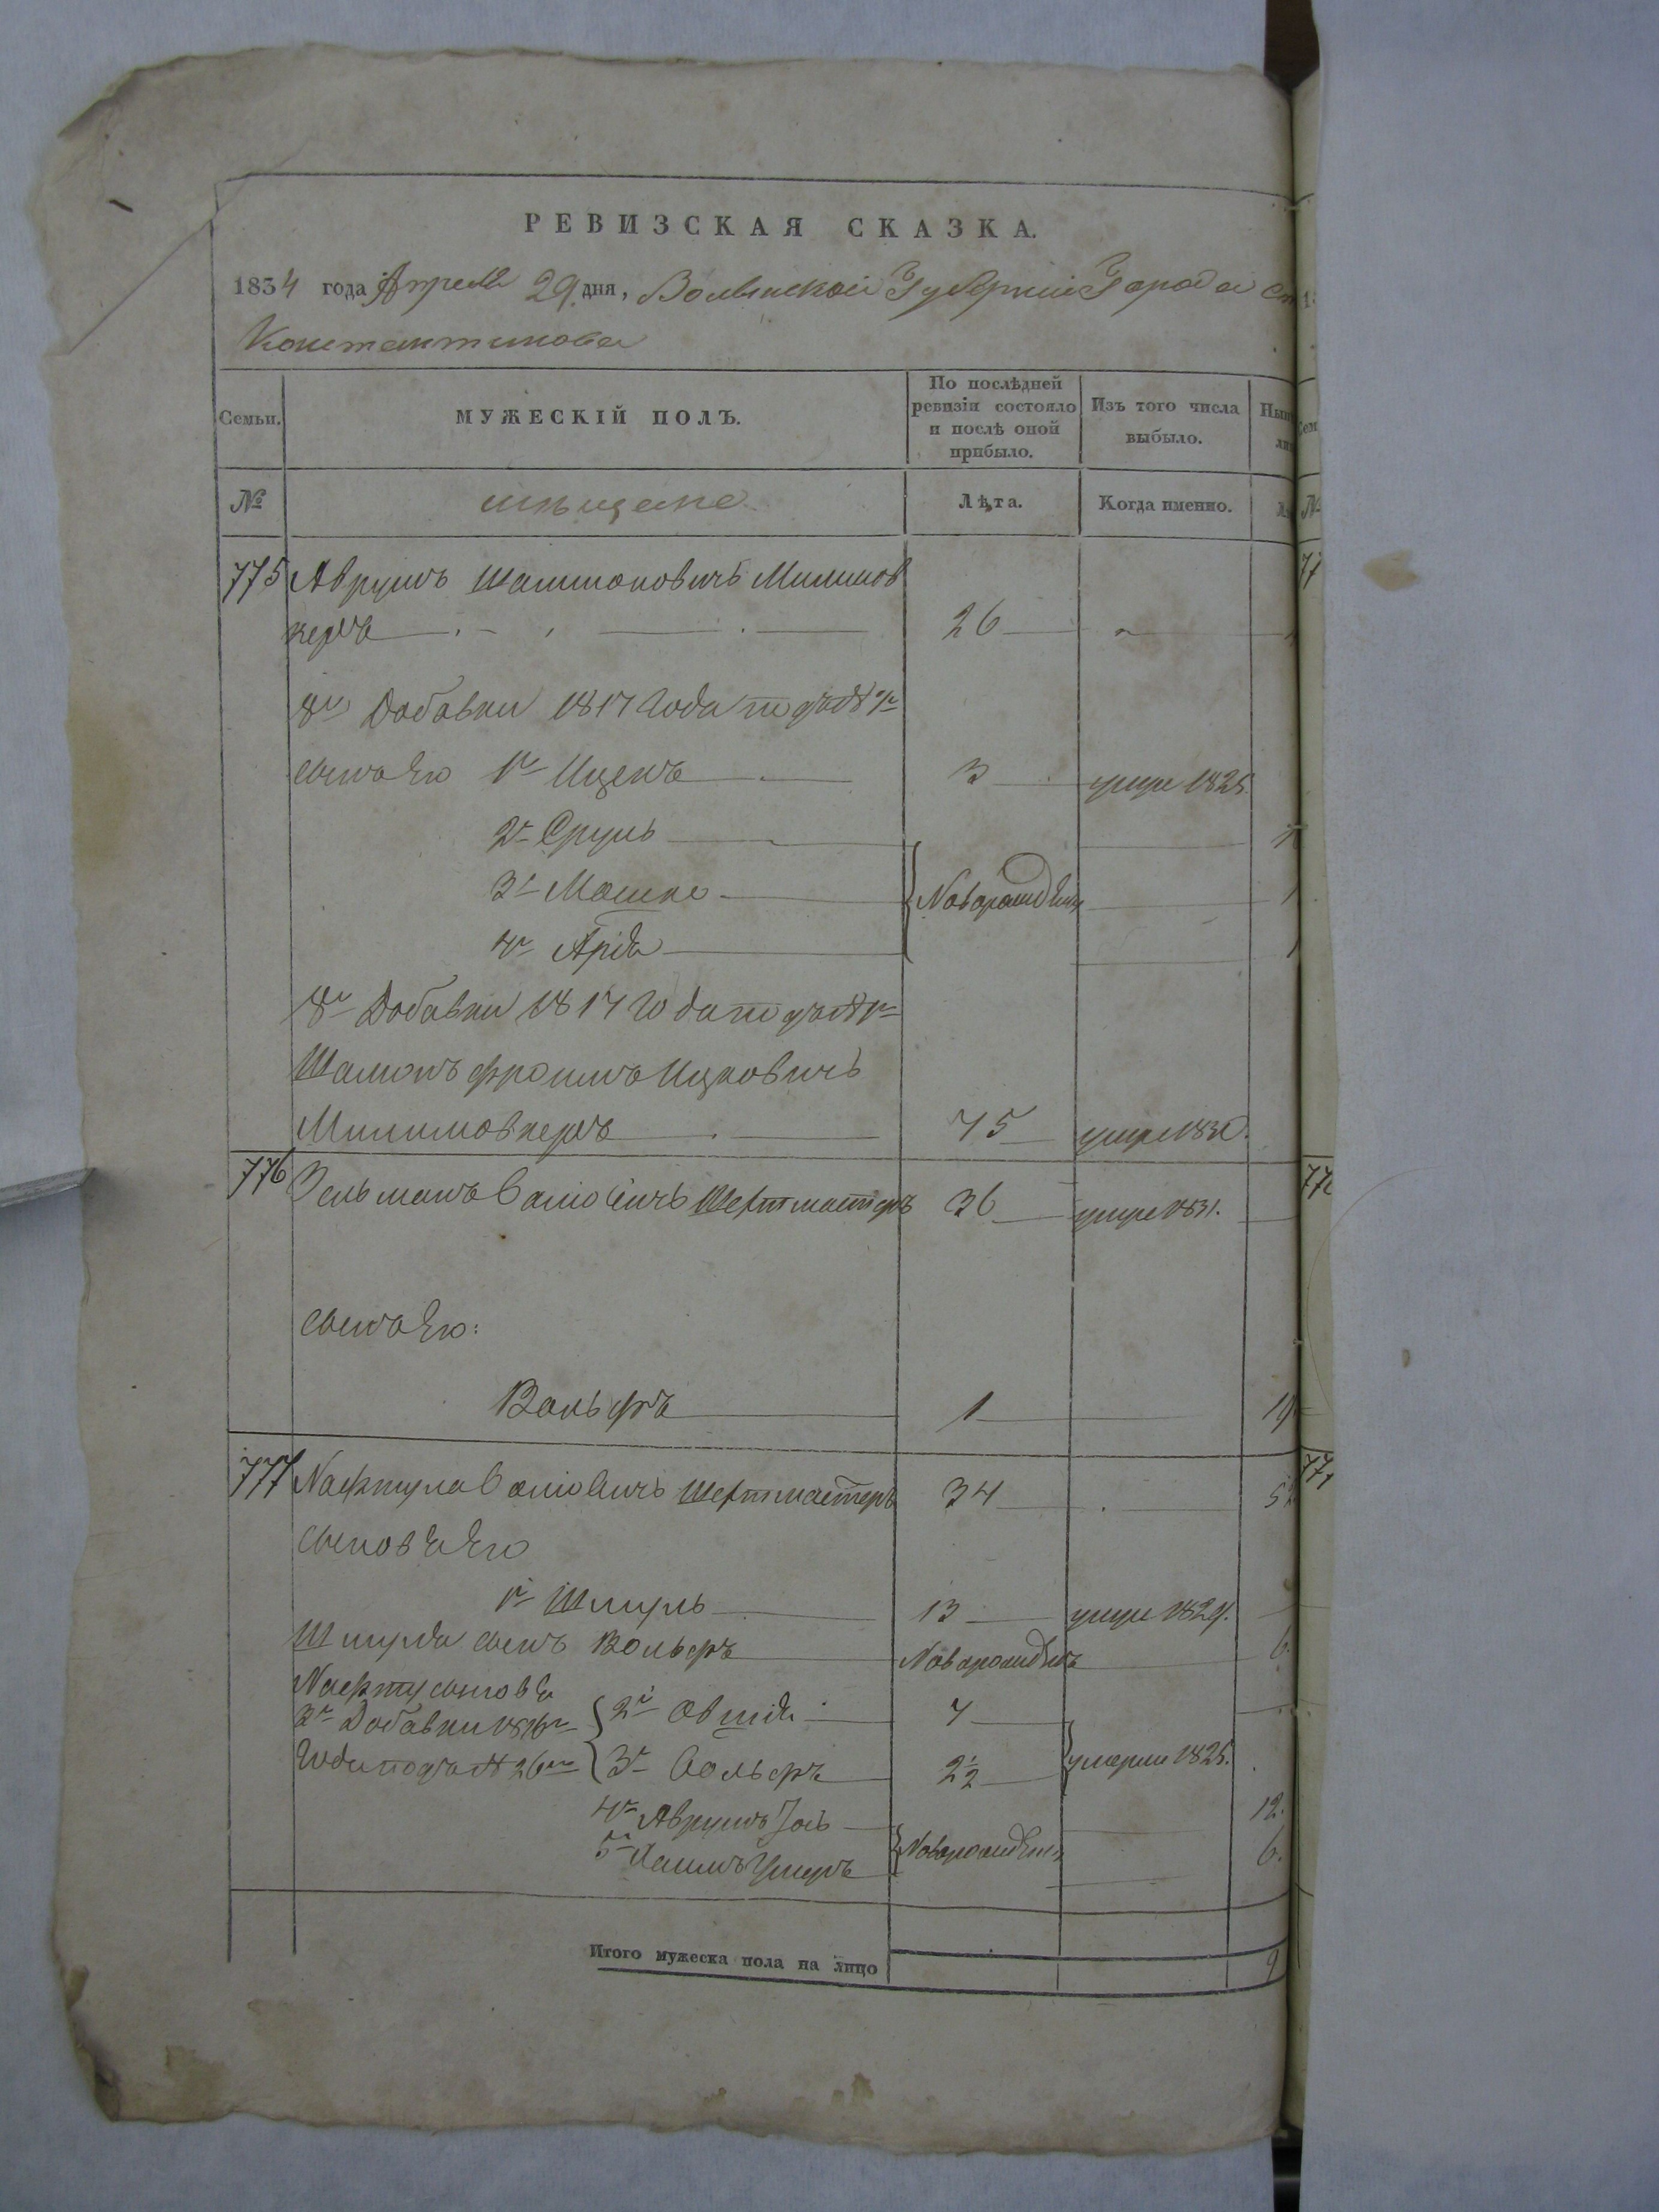 РЕВИЗСКАЯ СКАЗКА.
1834 года Апреля 29 дня, Волынской Губернии Города Ст
Константинова
Семьи. МУЖЕСКІЙ ПОЛЪ. По послѣдней ревизіи состояло и послѣ оной прибыло. Изъ того числа выбыло.
№ мѣщане Лѣта. Когда именно.
775 Аврумъ Шлиомовичъ Милимов
керъ 26
Добавки 1817 года подъ №
сынъ Его 1й Ицекъ 3 умре 1825.
2й Сруль
3й Мошко Новорожденны
4й Арія
Добавки 1817 года подъ №
Шлиомъ Фроимъ Ицковичъ
Милимовкеръ 75 умре 1830.
776 Зельманъ Волiовичъ Шертмастеръ 36 умре 1831.
сынъ Его:
Вольфъ 1 19
777 Нафтула Волiовичъ Шертмастеръ 34
сыновья Его
1й Шмуль 13 умре 1829.
Шмуля сынъ Вольфъ Новорожденъ 6.
Нафту сыновья
Добавки 1816 2й Овшія 7
Года подъ № 26 3й Вольфъ 2½ умерли 1825.
4й Аврумъ Іось 12.
5й Хаимъ Умеръ Новорожденны 6.
Итого мужеска пола на лицо 9